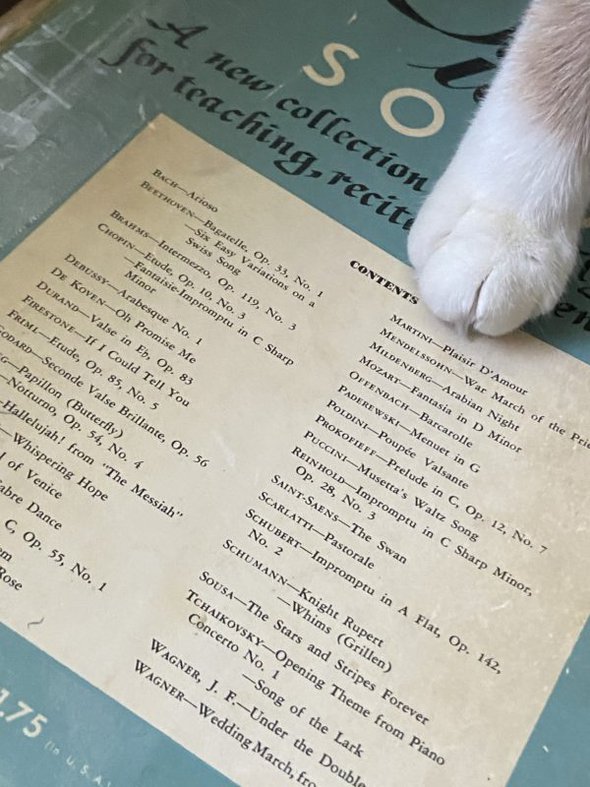 SO
A new collection
for teaching, recit
CONTENTS
BACH—Arioso
BEETHOVEN—Bagatelle, Op. 33, No. 1
—Six Easy Variations on a
Swiss Song
BRAHMS—Intermezzo, Op. 119, No. 3
CHOPIN—Etude, Op. 10, No. 3
—Fantaisie-Impromptu in C Sharp
Minor
DEBUSSY—Arabesque No. 1
DE KOVEN—Oh Promise Me
DURAND—Valse in E♭, Op. 83
FIRESTONE—If I Could Tell You
FRIML—Etude, Op. 85, No. 5
ODARD—Seconde Valse Brillante, Op. 56
Papillon (Butterfly)
—Notturno, Op. 54, No. 4
—Hallelujah! from "The Messiah"
—Whispering Hope
l of Venice
abre Dance
C, Op. 55, No. 1
Rose
MARTINI—Plaisir D'Amour
MENDELSSOHN—War March of the Prie
MILDENBERG—Arabian Night
MOZART—Fantasia in D Minor
OFFENBACH—Barcarolle
PADEREWSKI—Menuet in G
POLDINI—Poupée Valsante
PROKOFIEFF—Prelude in C, Op. 12, No. 7
PUCCINI—Musetta's Waltz Song
REINHOLD—Impromptu in C Sharp Minor,
Op. 28, No. 3
SAINT-SAENS—The Swan
SCARLATTI—Pastorale
SCHUBERT—Impromptu in A Flat, Op. 142,
No. 2
SCHUMANN—Knight Rupert
—Whims (Grillen)
SOUSA—The Stars and Stripes Forever
TCHAIKOVSKY—Opening Theme from Piano
Concerto No. 1
—Song of the Lark
WAGNER, J. F.—Under the Double
WAGNER—Wedding March, fro
1.75 (in U.S.A.)